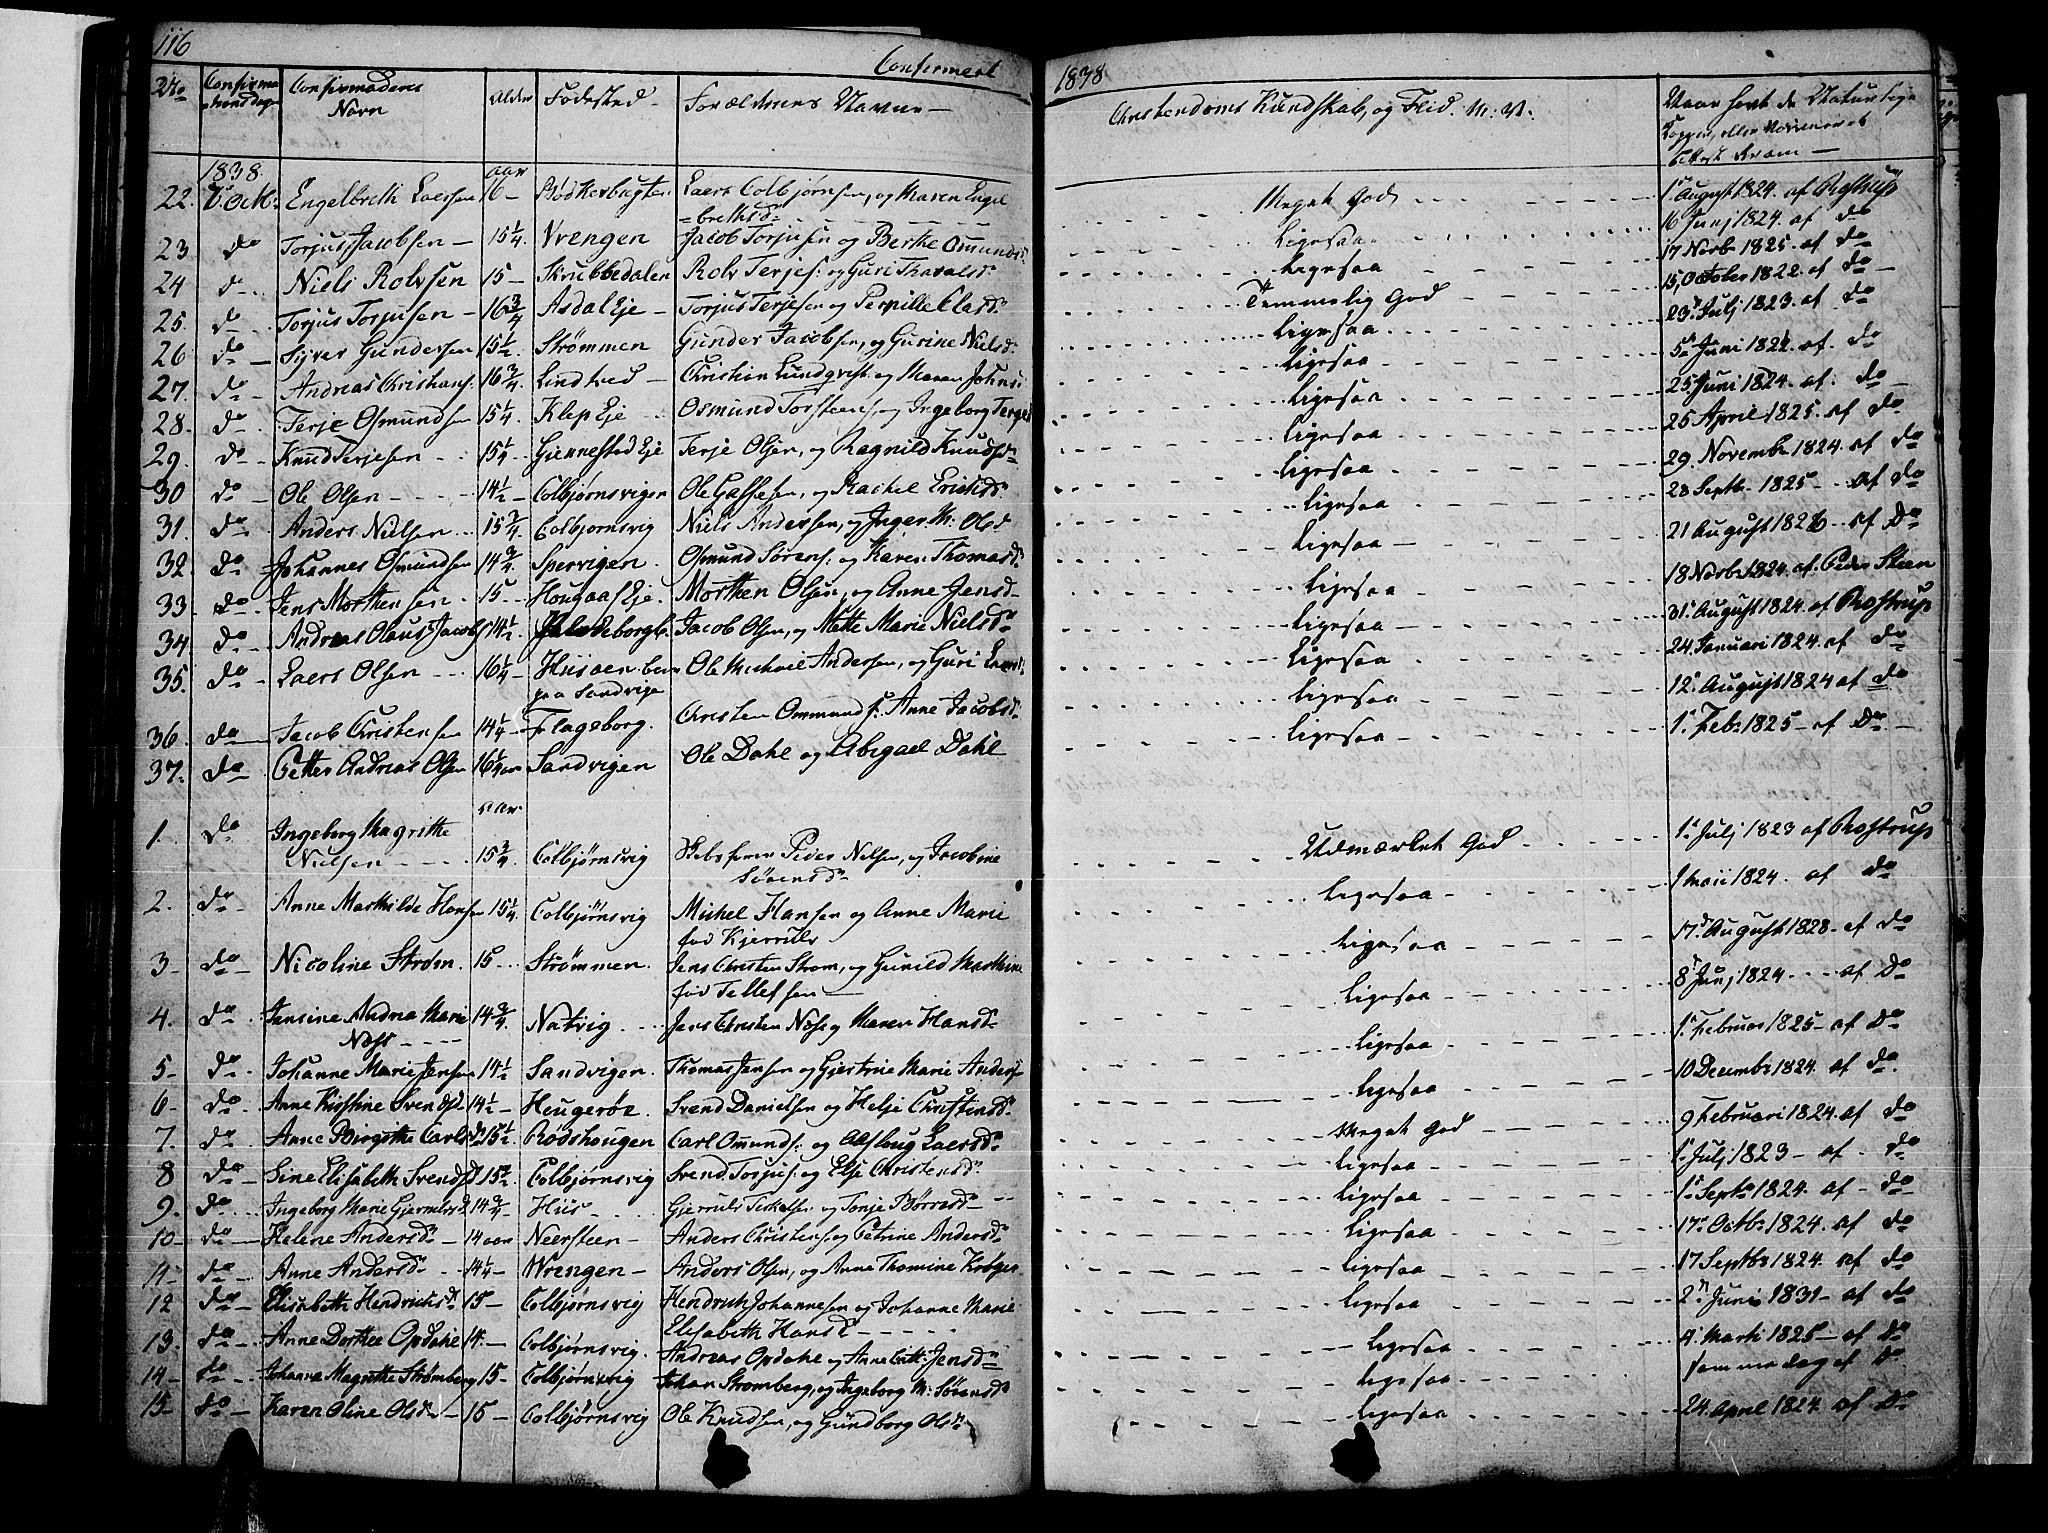 116
Confirmeret
1838
No Confirmationsdag Confirmadernes Navn Alder Fødested Forældrenes Navne Christendoms Kundskab, og Flid. M: V. Naar havt de Naturlige Kopper, eller Vaccineret
1838 aar
22. Engelbreth Laersen 16 Laers Colbjørnsen, og Maren Engelbrethsd Meget God 1 August 1824. af Rostrup
23 do Torjus Jacobsen 15 1/4 Vrengen Jacob Torjusen og Berthe Omundsd. Ligesaa 16 Junj 1824. af do
24 do Niels Rolvsen 15 Skrubbedalen Rolv Terjes: og Guri Tharalsd Ligesaa 17 Novbr 1825. af do
25. do Torjus Torjusen 16 3/4 Asdal Eje Torjus Terjesen og Pernille Olasd Temmelig God 15 October 1822. af do
26 do Syver Gundersen 15 1/2 Strømmen Gunder Jacobsen, og Gurine Nielsd. Ligesaa 23 Julj 1823. af do
27. do Andreas Christians: 16 3/4 Lindtved Christian Lundqvist og Maren Johns Ligesaa 5 Juni 1822. af. do
28. do Terje Osmundsen 15 1/4 Klep Eje Osmund Torsteens, og Ingeborg Terjes Ligesaa 25 Juni 1824. af: do
29. do Knud Terjesen 15 1/4 Gjennestad Eje Terje Olsen, og Ragnild Knudsd Ligesaa 25 April 1825. af do
30 do Ole Olsen 14 1/2 Colbjørnsvigen Ole Gassesen, og Rachel Ericksd Ligesaa 29. Novembr 1824. af do
31. do Anders Nielsen 15 3/4 Colbjørnsvig Niels Andersen, og Inger M: Olsd Ligesaa 28 Septb. 1825 af do
32. do Johannes Osmundsen 14 3/4 Spervigen Osmund Sørens: og Karen Thomasd Ligesaa 21 August 1826 af Do
33. do Jens Morthensen 15 Hougaas Eje Morthen Olsen, og Anne Jensd Ligesaa 18 Novbr 1824. af. Peder Steen
34. do Andreas Olaus Jacobs 14 1/2 Jacob Olsen, og Mette Marie Nielsd Ligesaa 31 August 1824. af Rostrup
35. do Laers Olsen 16 1/4 paa Sandvigen Ole Michael Andersen, og Guri Laersd Ligesaa 24. Januari 1824. af do
36. do Jacob Christensen 14 1/4 Flageborg. Christen Ommunds: Anne Jacobsd Ligesaa 12 August 1824 af do
37. do Petter Andreas Olsen 16 1/4 aar Sandvigen Ole Dahl og Abigael Dahl Ligesaa 1 Febr 1825 af Do
aar
1. do Ingeborg Magrithe Nielsen 15 3/4 Colbjørnsvig Peder Nelsen, og Jacobine Sørensd Udmærket God 1 Julj 1823 af Rostrup
2. do Anne Mathilde Hansen 15 1/4 Colbjørnsvig Michel Hansen og Anne Marie fød Kjerrulv Ligesaa 1 Maii 1824. af do
3 do Nicoline Strøm. 15 Strømmen. Jens Christen Strøm, og Gunild Marthine fød Tellefsen Ligesaa 17 August 1828 af do
4. do Jensine Andrea Marie Næss 14 3/4 Natvig Jens Christen Næss og Maren Hansd Ligesaa 8 Junj 1824 af Do
5 do Johanne Marie Jensen 14 1/2 Sandvigen Thomas Jensen og Gjertrine Marie Anders Ligesaa 1 Februar 1825 af Do
6 do Anne Kirstine Svendsd 14 1/2 Heugerøe. Svend Danielsen og Helje Christinsd Ligesaa 10 Decembr 1824. af do
7. do Anne Birgithe Carlsd 15 1/2 Rødshougen Carl Omunds: og Aslaug Laersd Meget God 9 Februari 1824. af do
8 do Sine Elisabeth Svendsd 15 3/4 Colbjørnsvig Svend. Torjus: og Else Christensd Ligesaa 1 Julj 1823 af do
9. do Ingeborg Marie Gjerrulvsd 14 3/4 Hiis Gjerrulv Terkelsen og Tonje Børresd Ligesaa 1 Septb 1824. af do
10 do Helene Andersd 14 aar Neersteen Anders Christens og Petrine Andersd Ligesaa 17 Octbr 1824. af do
11 do Anne Andersd 14 1/4 Wrengen Anders Olsen, og Anne Thomine Ligesaa 17 Septbr 1824. af do
12 do Elisabeth Hendrichsd 15 Colbjørnsvig Hendrich Johannesen og Johanne Marie Elisabeth Hansd Ligesaa 2 Juni 1831 af do
13. do Anne Dorthee Opdahl 14. Colbjørnsvig. Andreas Opdahl og Anne Jensd Ligesaa 4 Marti 1825 af do
14 do Johanne Magrethe Strømberg 15 Colbjørnsvig Johan Strømberg, og Ingeborg M: Sørensd Ligesaa samme dag af Do
15 do Karen Oline Olsd 15 Colbjørnsvig Ole Knudsen, og Gundborg Olsd Ligesaa 24 April 1824. af Do